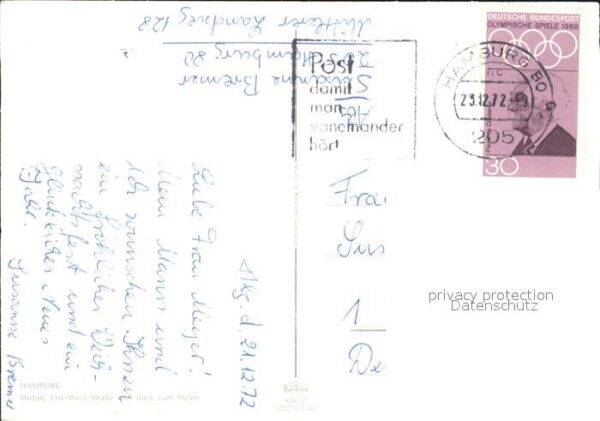 Abs.
Susanne Bremer
205 Hamburg 80
Mittlerer Landweg 128
Post
damit
man
voneinander
hört
HAMBURG 80
nc
23.12.72
205
DEUTSCHE BUNDESPOST
OLYMPISCHE SPIELE 1968
30
Hbg. d. 21.12.72
Liebe Frau Meyer!
Mein Mann und
ich wünschen Ihnen
ein fröhliches Weih-
nachtsfest und ein
glückliches Neues
Jahr.
Susanne Bremer
Frau
Sus
1
De
privacy protection
Datenschutz
HAMBURG
Michel, Ost-West-Straße Blick zum Hafen
Krüger